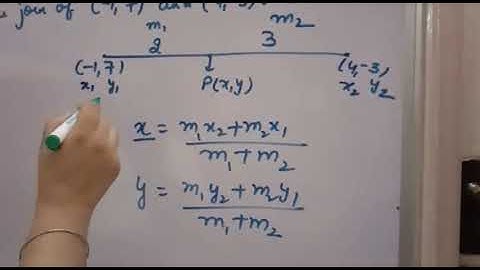 join of (-1,7) and (4,-3)
m₁ m₂
2 3
(-1,7) P(x,y) (4,-3)
x₁ y₁ x₂ y₂
x = m₁x₂+m₂x₁
m₁+m₂
y = m₁y₂+m₂y₁
m₁+m₂